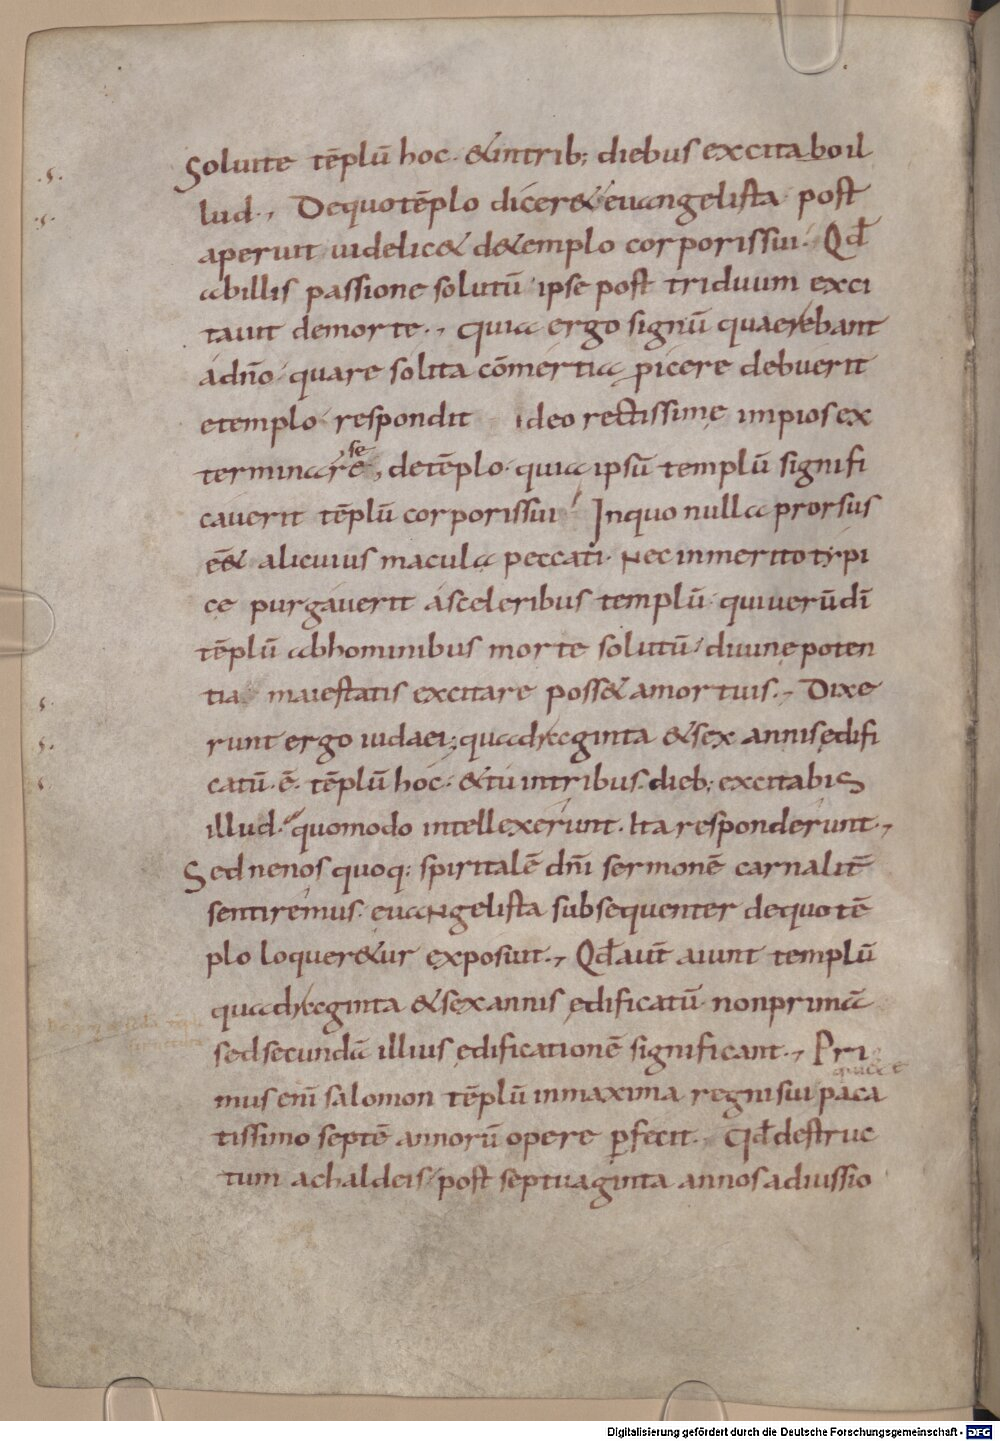 Soluite tēplū hoc· &intrib; diebus excitaboil
lud·, Dequotēplo dicer& euangelista post
aperuit uidelic& d&emplo corporissui· Qđ
abillis passione solutū ipse post triduum exci
tauit demorte·, Quia ergo signū quaerebant
adn̄o quare solita cōmertia ꝓicere debuerit
etemplo respondit ideo rectissimę impiosex
terminarēse, detēplo· quia ipsū templū signifi
cauerit tēplū corporissui Inquo nulla prorsus
ēē& alicuius macula peccati· Nec inmerito typi
ce purgauerit asceleribus templū· quiuerūdī
tēplū abhominibus morte solutū diuinę poten
tia maiestatis excitare poss& amortuis·, Dixe
runt ergo iudaei; quadraginta &sex annis ędifi
catū· ē· tēplū hoc· &tu intribus· dieb; excitabis
illud· quomodo intellexerunt· Ita responderunt·,
Sed nenos quoq; spiritalē dn̄i sermonē carnalit̄
sentiremus· euaNgelista subsequenter dequo tē
plo loquer&ur exposuit·, Qđ aut̄ aiunt templū
quadraginta &sex annis ędificatū· nonprimā
sed secundā illius ędificationē significant·, Pri
mus enī salomon tēplū inmaxima regnisui paca
tissimo septē annorū opere ꝑfecit· Qđ destruc
tum achaldeis post septuaginta annos adiussio
·s·
·s·
s·
s·